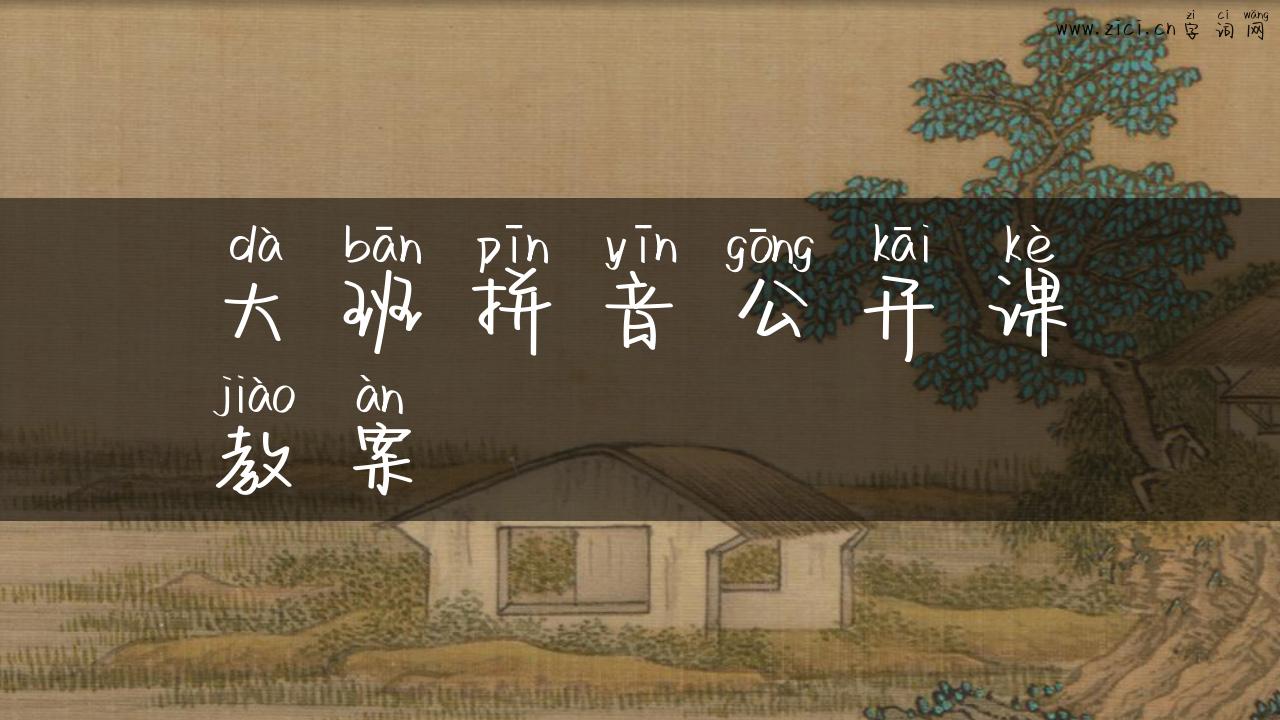 zì cí wǎng
www.zici.cn 字 词 网
dà bān pīn yīn gōng kāi kè
大 班 拼 音 公 开 课
jiào àn
教 案